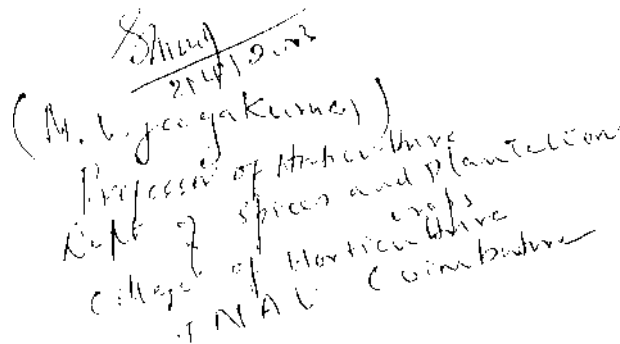 (M. Jeyakumar)
Professor of Horticulture
Dept of Spices and Plantation
crops
College of Horticulture
TNAU Coimbatore